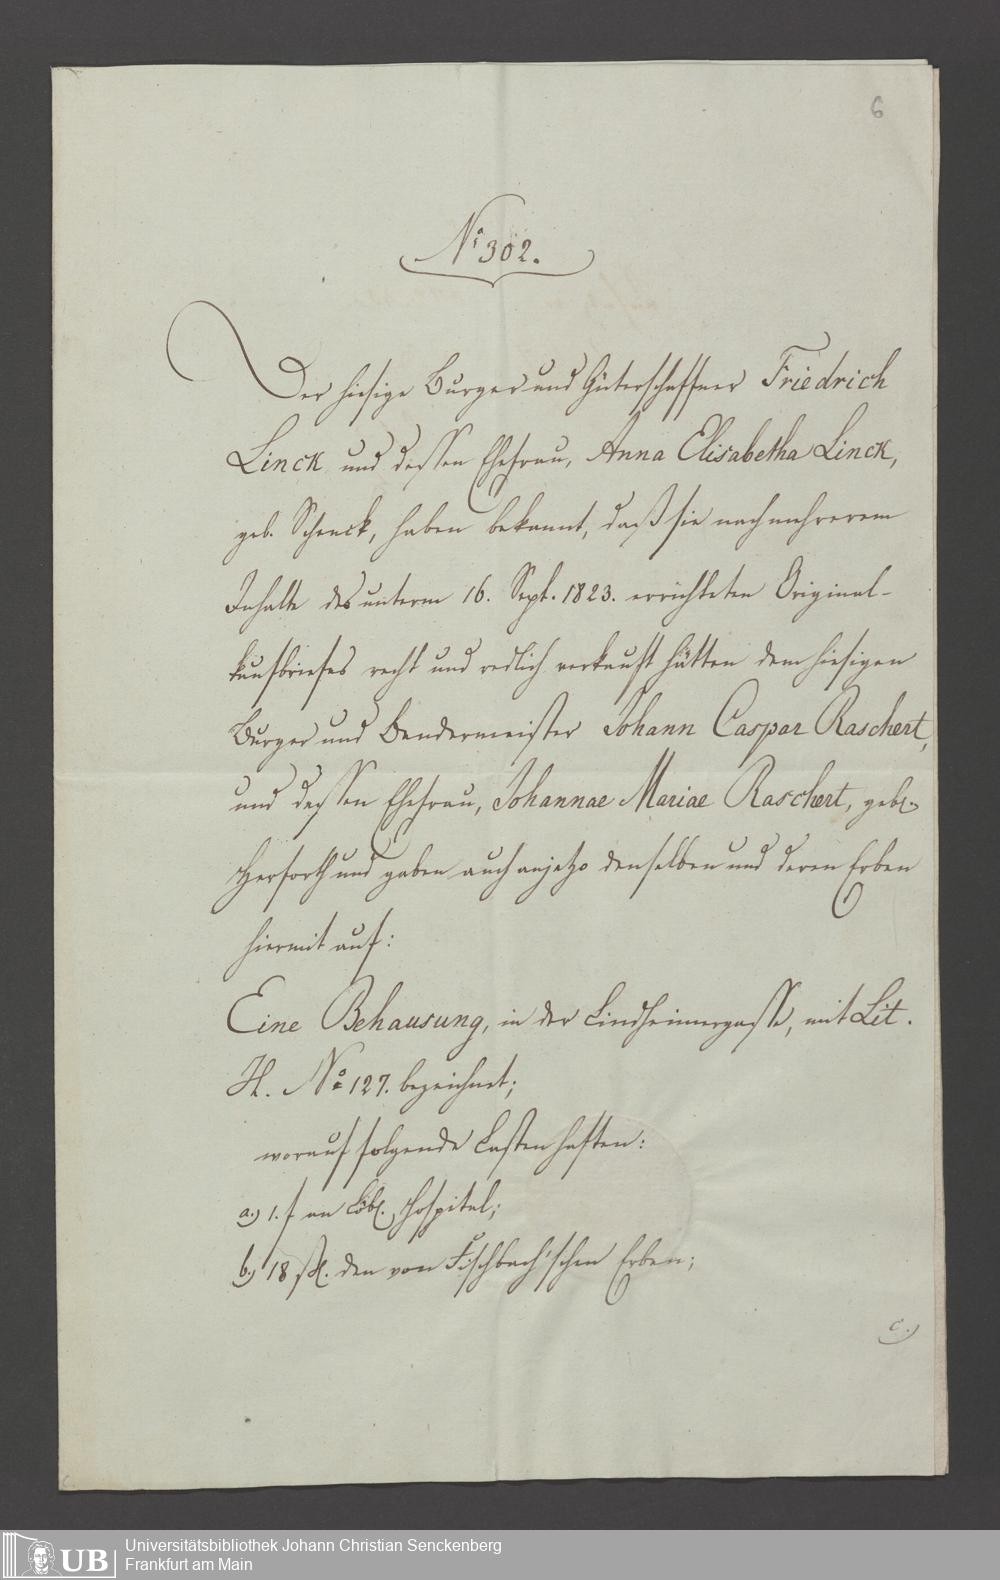 6
No 302.
Der hiesige Burger und Güterschaffner Friedrich
Linck und dessen Ehefrau, Anna Elisabetha Linck,
geb. Schenck, haben bekannt, daß sie nach mehrerem
Inhalte des unterm 16. Sept. 1823. errichteten Original-
kaufbriefes recht und redlich verkauft hätten dem hiesigen
Burger und Bendermeister Johann Caspar Raschert,
und dessen Ehefrau, Johannae Mariae Raschert, geb.
Herforth und gaben auch anjetzo denselben und deren Erben
hiermit auf:
Eine Behausung, in der Lindheimergasse, mit Lit.
H. No 127. bezeichnet;
worauf folgende Lasten haften:
a.) 1. f an Löbl. Hospital;
b.) 18 ßl. den von Fischbach'schen Erben;
c.)
UB
Universitätsbibliothek Johann Christian Senckenberg
Frankfurt am Main